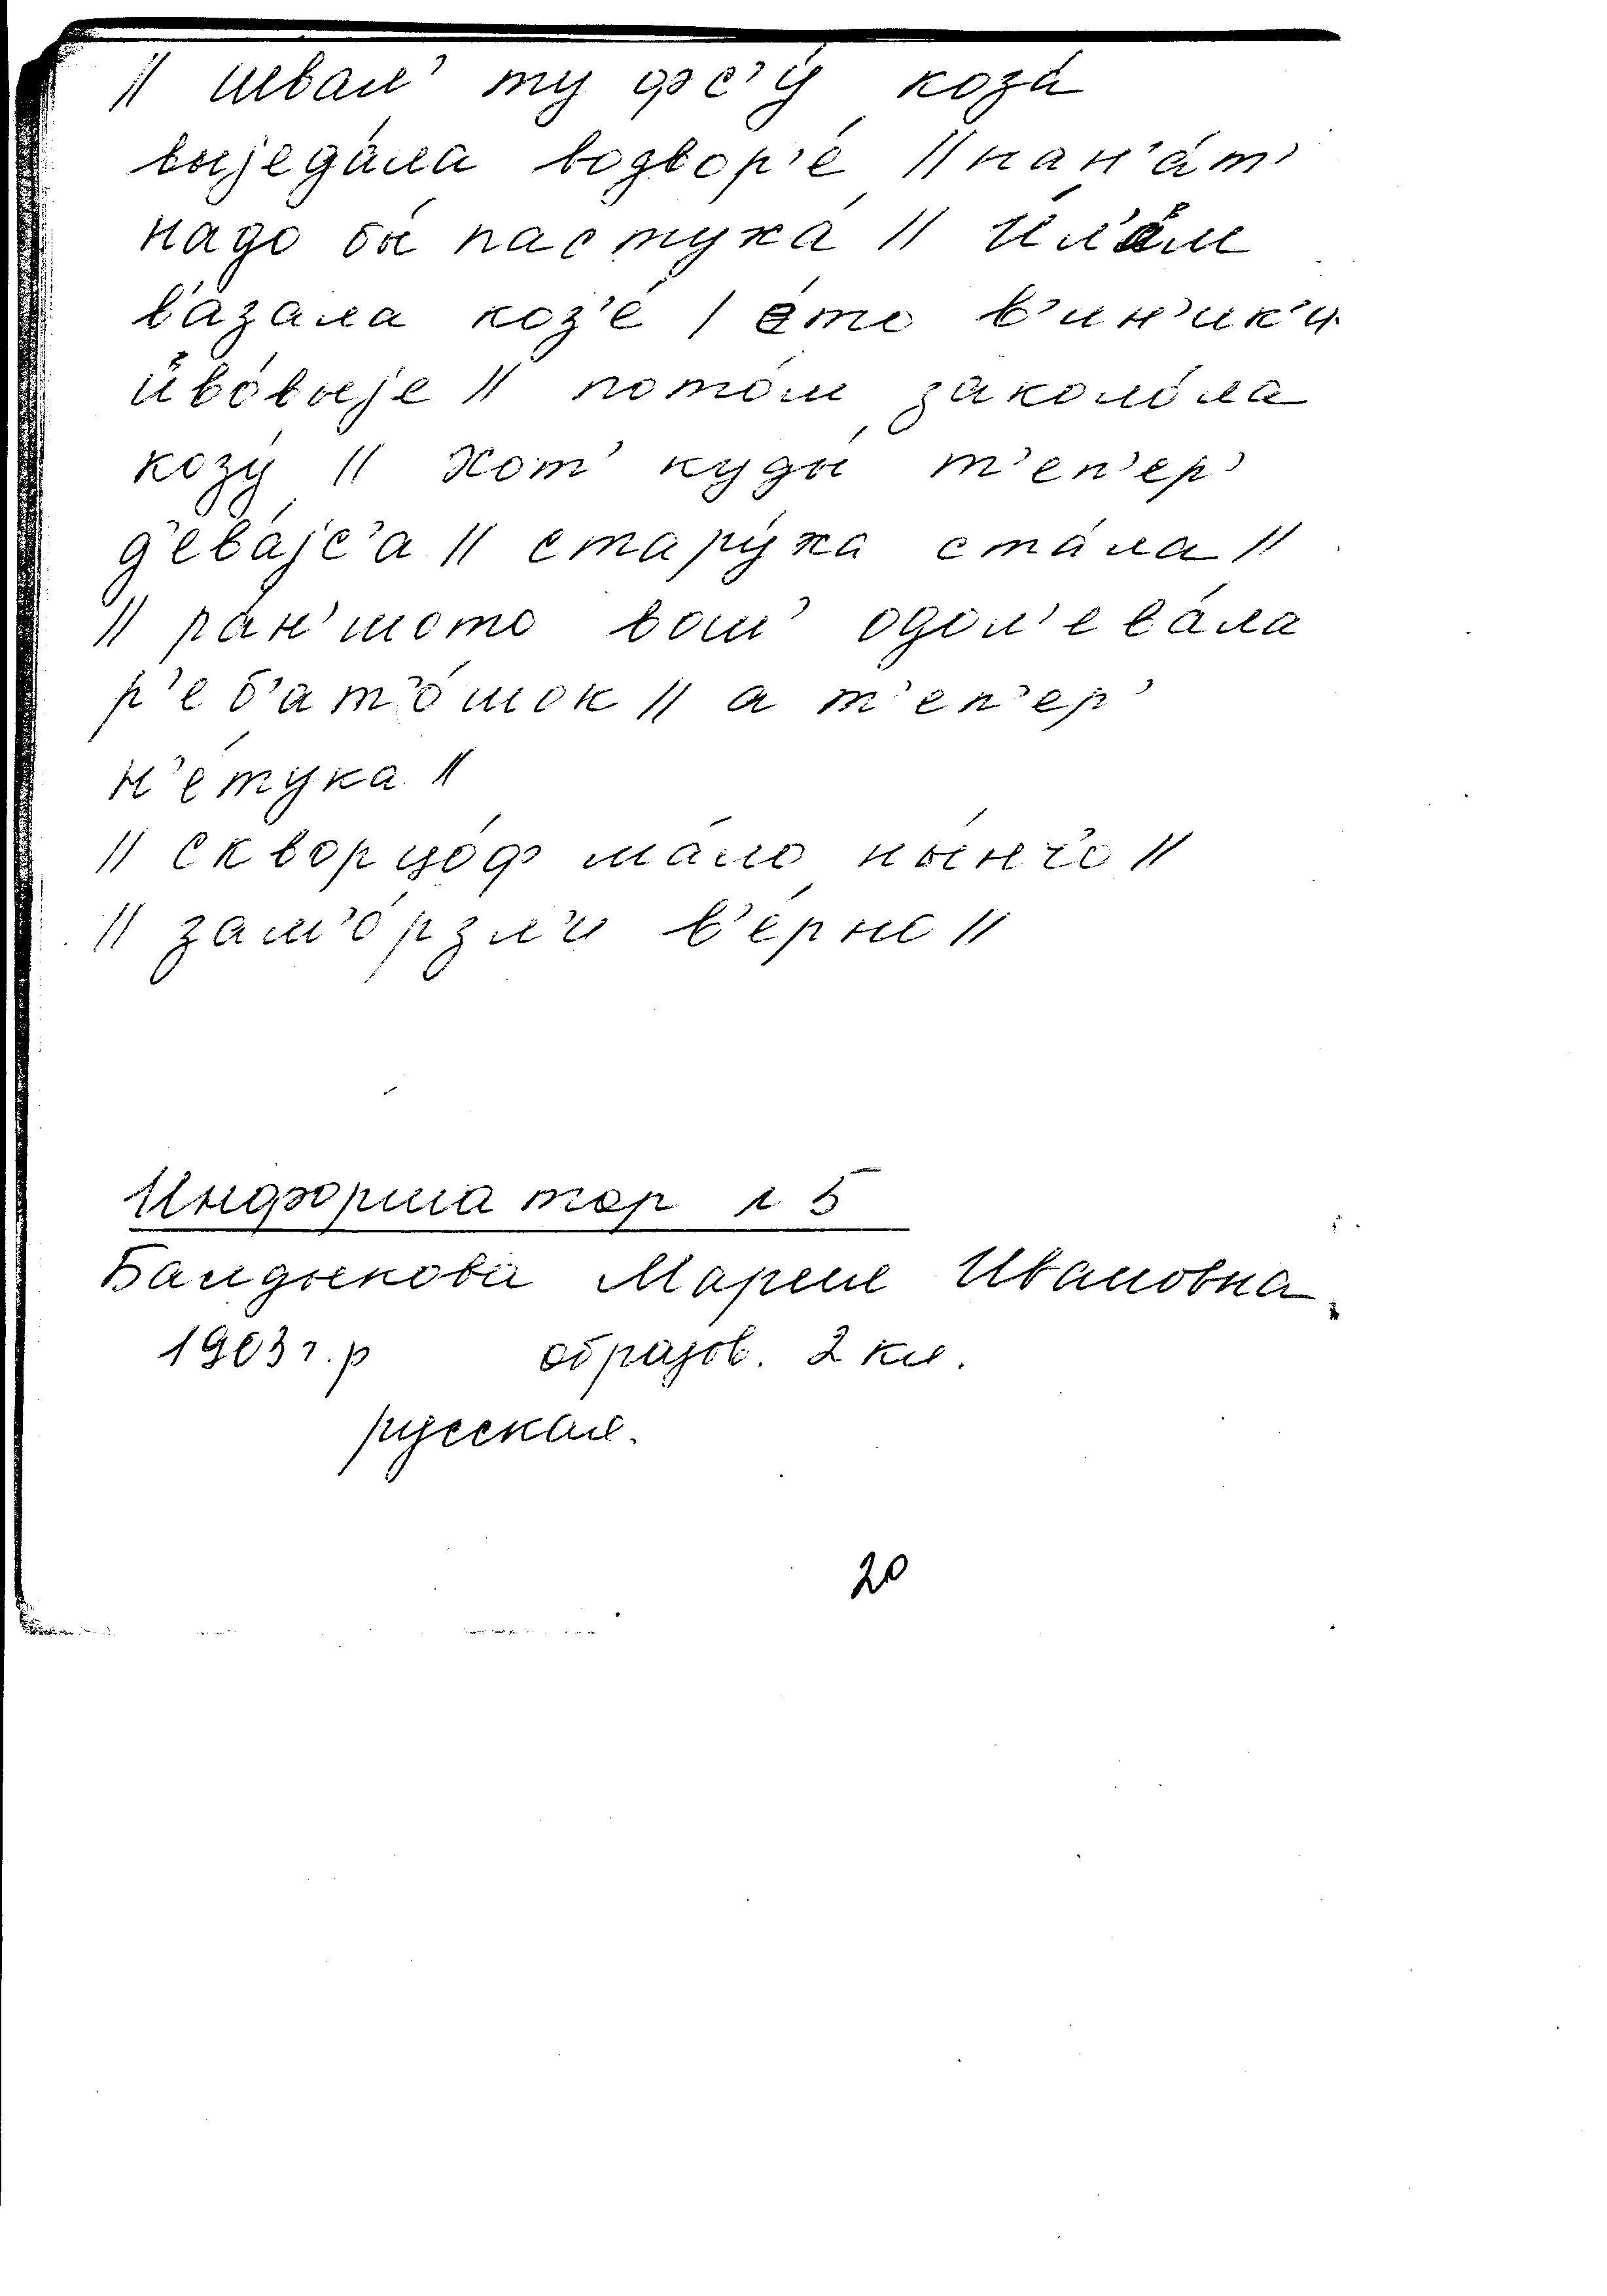 // швал' ту фс'у́ коза́
выjеда́ла водвор'е́ // нан'а́т'
надо бы́ пастуха́ // и́л'ём
в'аза́ла коз'е́ / е́то в'ин'ик'и
и́во́выjе // пото́м заколо́ла
козу́ // хот' куды́ т'еп'ер'
д'ева́jс'а // стару́ха ста́ла //
// ра́н'шото вош' одол'ева́ла
р'еб'ат'о́шок // а т'еп'ер'
н'е́тука //
// скворцо́ф ма́ло ны́нч'о //
// зам'о́рзл'и в'е́рно //
Информатор № 5
Балдыкова Мария Ивановна
1903 г.р образов. 2 кл.
русская.
20